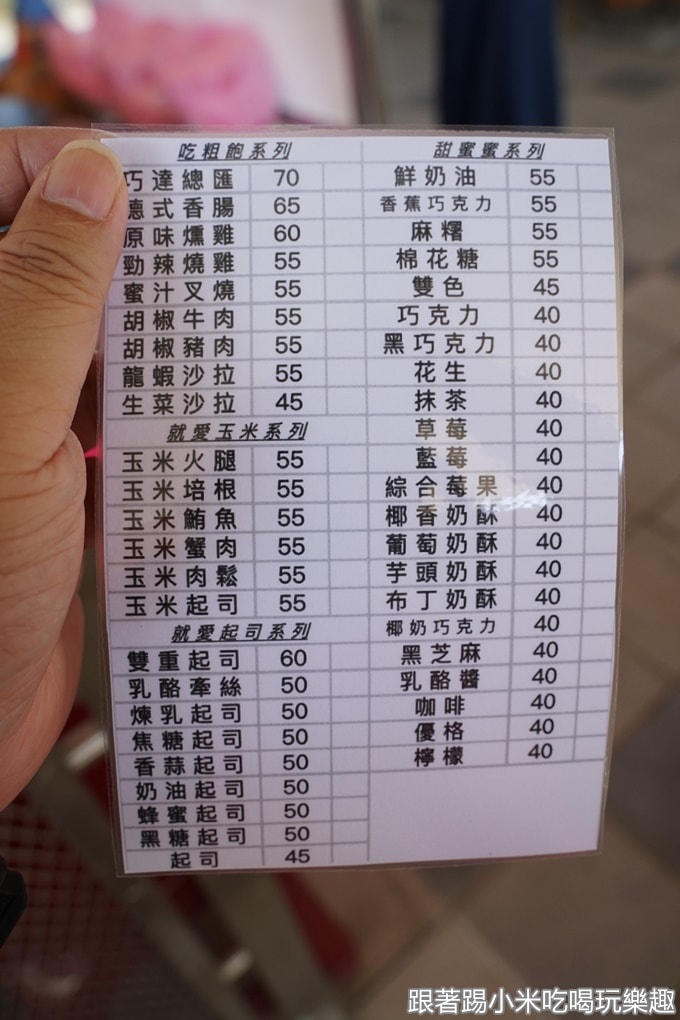 吃粗飽系列
巧達總匯 70
德式香腸 65
原味燻雞 60
勁辣燒雞 55
蜜汁叉燒 55
胡椒牛肉 55
胡椒豬肉 55
龍蝦沙拉 55
生菜沙拉 45
就愛玉米系列
玉米火腿 55
玉米培根 55
玉米鮪魚 55
玉米蟹肉 55
玉米肉鬆 55
玉米起司 55
就愛起司系列
雙重起司 60
乳酪牽絲 50
煉乳起司 50
焦糖起司 50
香蒜起司 50
奶油起司 50
蜂蜜起司 50
黑糖起司 50
起司 45
甜蜜蜜系列
鮮奶油 55
香蕉巧克力 55
麻糬 55
棉花糖 55
雙色 45
巧克力 40
黑巧克力 40
花生 40
抹茶 40
草莓 40
藍莓 40
綜合莓果 40
椰香奶酥 40
葡萄奶酥 40
芋頭奶酥 40
布丁奶酥 40
椰奶巧克力 40
黑芝麻 40
乳酪醬 40
咖啡 40
優格 40
檸檬 40
跟著踢小米吃喝玩樂趣